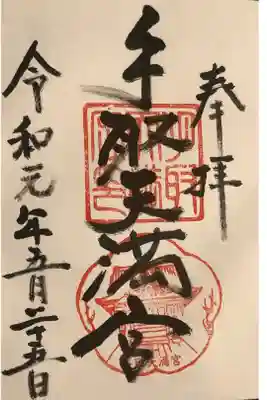 奉拝
手取天満宮
令和元年五月二十五日